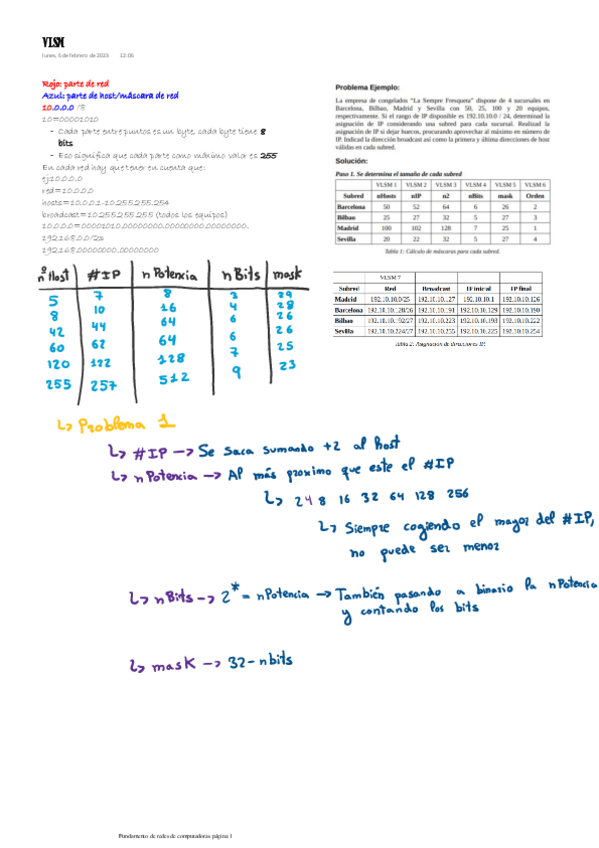 VLSM
lunes, 6 de febrero de 2023 12:06
Rojo: parte de red
Azul: parte de host/máscara de red
10.0.0.0 /8
10=00001010
- Cada parte entre puntos es un byte, cada byte tiene 8
bits
- Eso significa que cada parte como máximo valor es 255
En cada red hay que tener en cuenta que:
ej10.0.0.0
red=10.0.0.0
hosts=10.0.0.1-10.255.255.254
broadcast=10.255.255.255 (todos los equipos)
10.0.0.0=00001010.00000000.00000000.00000000.
192.168.0.0/23
192.168.00000000.00000000
nº Host #IP nPotencia nBits mask
5 7 8 3 29
8 10 16 4 28
42 44 64 6 26
60 62 64 6 26
120 122 128 7 25
255 257 512 9 23
Problema Ejemplo:
La empresa de congelados "La Sempre Fresqueta" dispone de 4 sucursales en
Barcelona, Bilbao, Madrid y Sevilla con 50, 25, 100 y 20 equipos,
respectivamente. Si el rango de IP disponible es 192.10.10.0 / 24, determinad la
asignación de IP considerando una subred para cada sucursal. Realizad la
asignación de IP si dejar huecos, procurando aprovechar al máximo en número de
IP. Indicad la dirección broadcast así como la primera y última direcciones de host
válidas en cada subred.
Solución:
Paso 1. Se determina el tamaño de cada subred
VLSM 1 VLSM 2 VLSM 3 VLSM 4 VLSM 5 VLSM 6
Subred nHosts nIP n2 nBits mask Orden
Barcelona 50 52 64 6 26 2
Bilbao 25 27 32 5 27 3
Madrid 100 102 128 7 25 1
Sevilla 20 22 32 5 27 4
Tabla 1: Cálculo de máscaras para cada subred.
VLSM 7
Subred Red Broadcast IP inicial IP final
Madrid 192.10.10.0/25 192.10.10.127 192.10.10.1 192.10.10.126
Barcelona 192.10.10.128/26 192.10.10.191 192.10.10.129 192.10.10.190
Bilbao 192.10.10.192/27 192.10.10.223 192.10.10.193 192.10.10.222
Sevilla 192.10.10.224/27 192.10.10.255 192.10.10.225 192.10.10.254
Tabla 2: Asignación de direcciones IP.
↳ Problema 1
↳ #IP → Se saca sumando +2 al host
↳ nPotencia → Al más proximo que este el #IP
↳ 2 4 8 16 32 64 128 256
↳ Siempre cogiendo el mayor del #IP,
no puede ser menor
↳ nBits → 2* = nPotencia → También pasando a binario la nPotencia
y contando los bits
↳ mask → 32 - nbits
Fundamento de redes de computadoras página 1